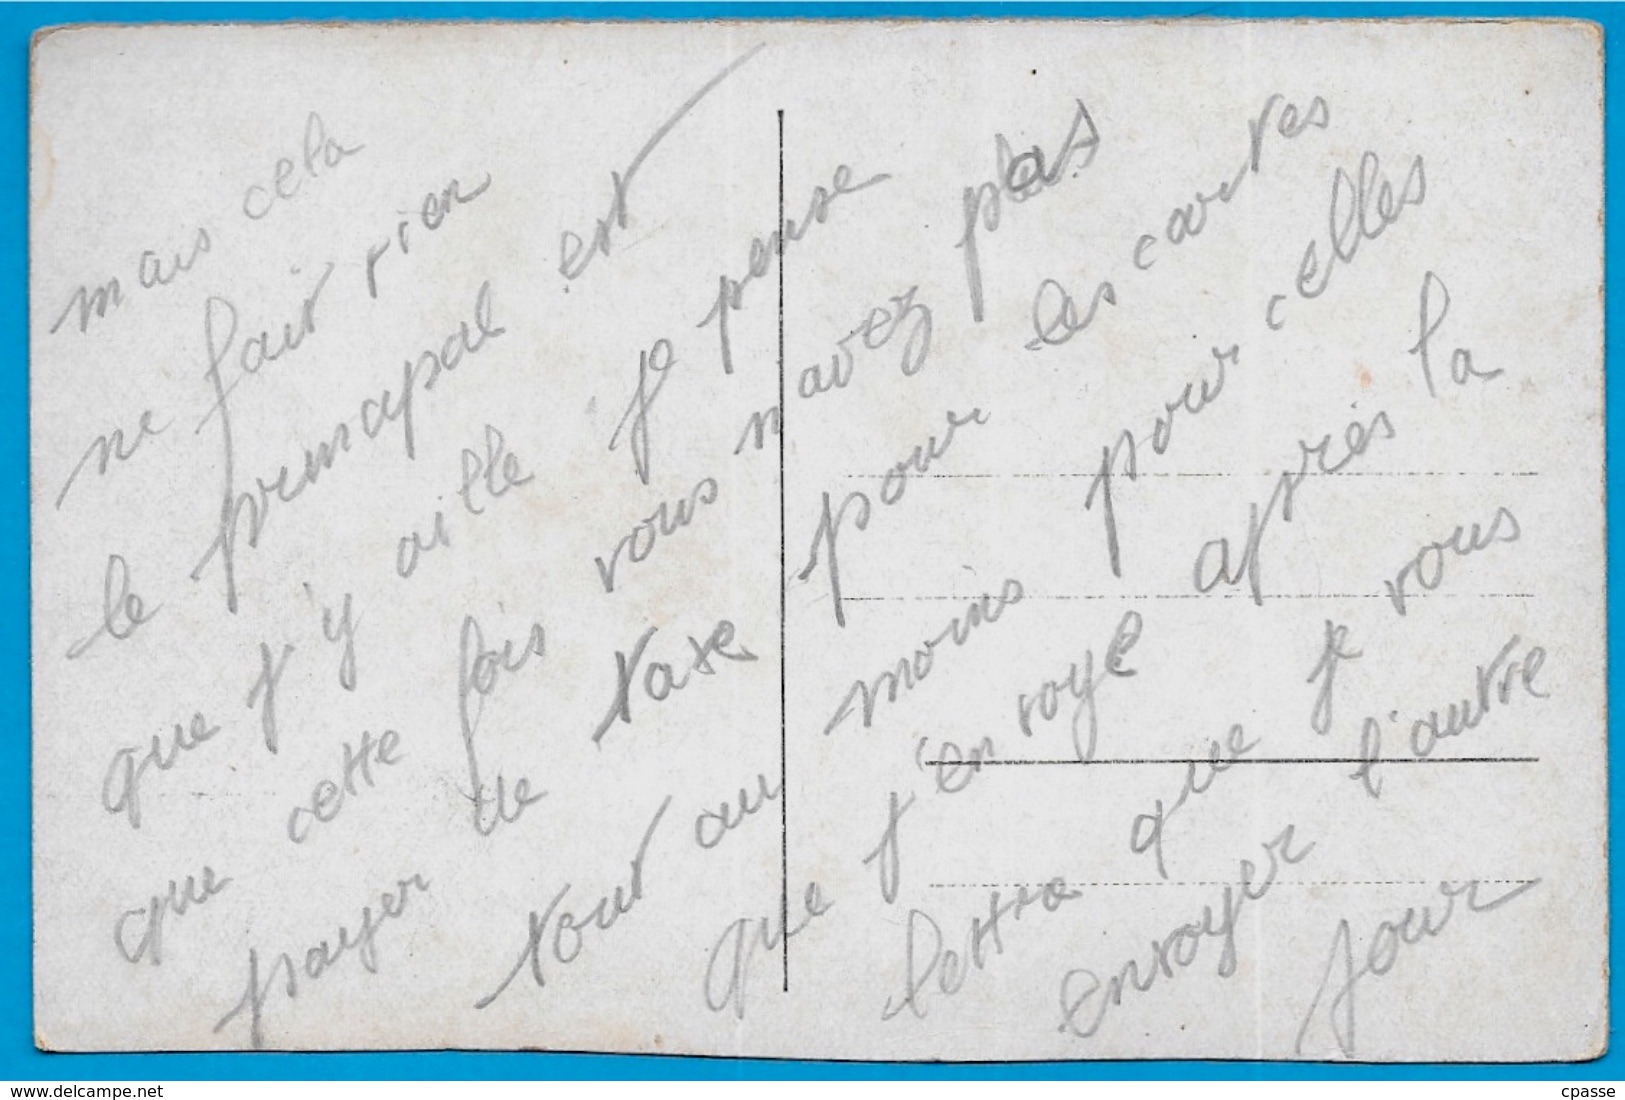 mais cela
ne fait rien
le prinsapal est
que j'y aille je pense
que cette fois vous n'avez plas
payer de taxe pour les cartes
tout au moins pour celles
que j'envoye après la
lettre que je vous
envoyer l'autre
jour
cpasse